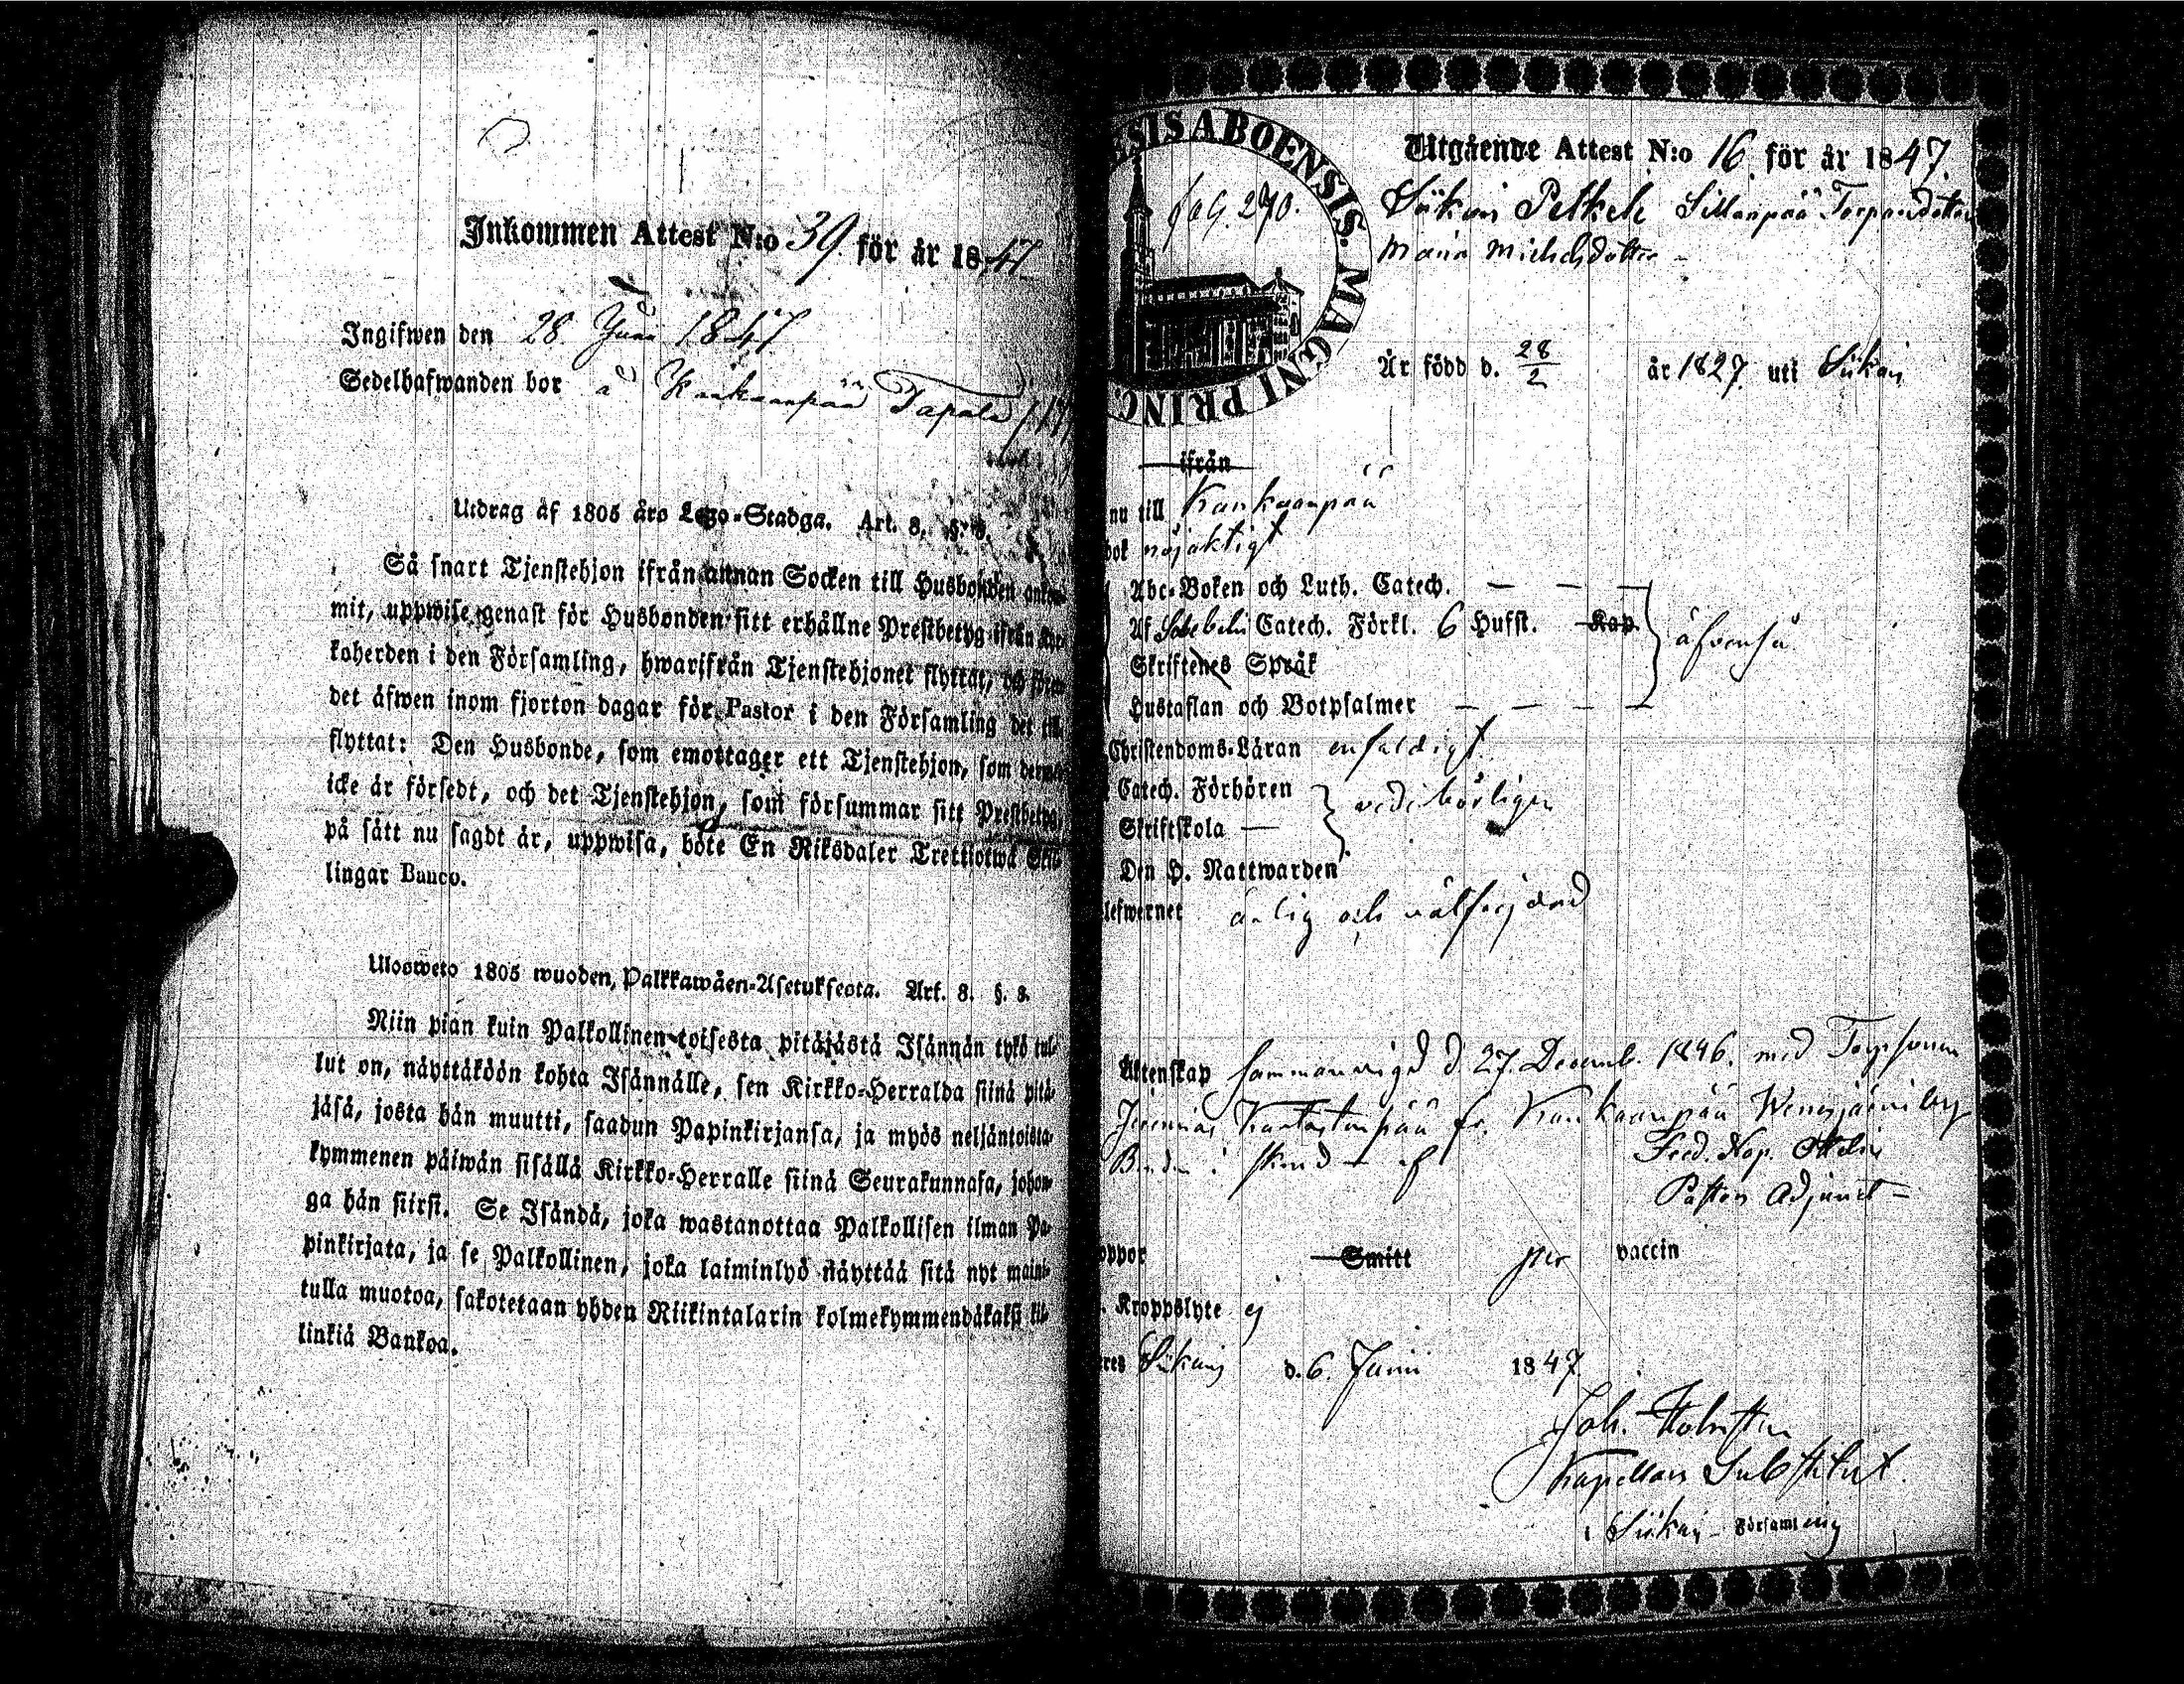 Inkommen Attest N:o 39 för år 1847
Ingifwen den 28. Juni 1847
Sedelhafwanden bor å Kankaanpää Tapala
Utdrag af 1805 års Lego-Stadga. Art. 8. §. 3.
Så snart Tjenstehjon ifrån annan Socken till Husbonden ankom-
mit, uppwise genast för Husbonden sitt erhållne Prestbetyg ifrån Kyr-
koherden i den Församling, hwarifrån Tjenstehjonet flyttat, och
det äfwen inom fjorton dagar för Pastor i den Församling det till
flyttat: Den Husbonde, som emottager ett Tjenstehjon, som dermed
icke är försedt, och det Tjenstehjon, som försummar sitt Prestbetyg,
på sätt nu sagdt är, uppwisa, böte En Riksdaler Trettiotwå Skil-
lingar Banco.
Ulosweto 1805 wuoden, Palkkawäen-Asetuksesta. Art. 8. §. 3.
Niin pian kuin Palkollinen toisesta pitäjästä Isännän tykö tul-
lut on, näyttäköön kohta Isännälle, sen Kirkko-Herralda siinä pitä-
jäsä, josta hän muutti, saadun Papinkirjansa, ja myös neljäntoista-
kymmenen päiwän sisällä Kirkko-Herralle siinä Seurakunnasa, johon-
ga hän siirsi. Se Isändä, joka wastanottaa Palkollisen ilman Pa-
pinkirjata, ja se Palkollinen, joka laiminlyö näyttää sitä nyt maini-
tulla muotoa, sakotetaan yhden Riikintalarin kolmekymmendäkaksi kil-
linkiä Bankoa.
SIS ABOENSIS. MAGNI PRINC.
pag. 270.
Utgående Attest N:o 16 för år 1847.
Siikais Petkele Sillanpää Torparedotter
Maria Michelsdotter
Är född d. 28/2 år 1827. uti Siikais
ifrån
nu till Kankaanpää
bok nöjaktigt
Abc-Boken och Luth. Catech.
Af Sebelii Catech. Förkl. 6 Hufst. Kap. äfvenså
Skriftenes Språk
Hustaflan och Botpsalmer
Christendoms-Läran enfaldigt
Catech. Förhören vederbörligen
Skriftskola
Den H. Nattwarden
lefwernet ärlig och välfrejdad
Äktenskap sammanvigd d 27. Decemb. 1846. med Torpsonen
Jeremias fr. Kankaanpää
Pastors Adjunct
oppor Smitt per vaccin
Kroppslyte ej
res Siikais d. 6. Junii 1847.
Joh.
Kapellans Substitut
i Siikais Församling